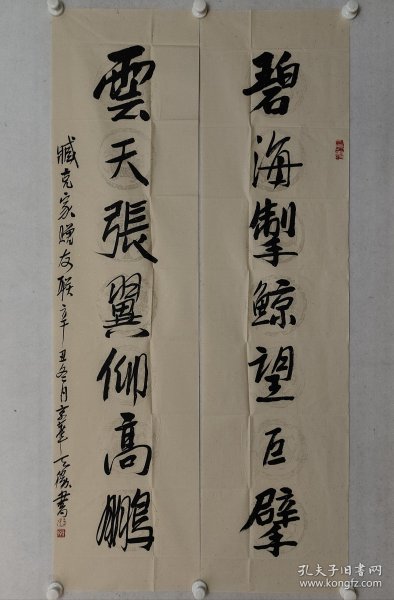 碧海掣鲸望巨擘
雲天張翼仰高鵬
臧克家赠友联辛丑冬月京華
孔夫子旧书网
www.kongfz.com